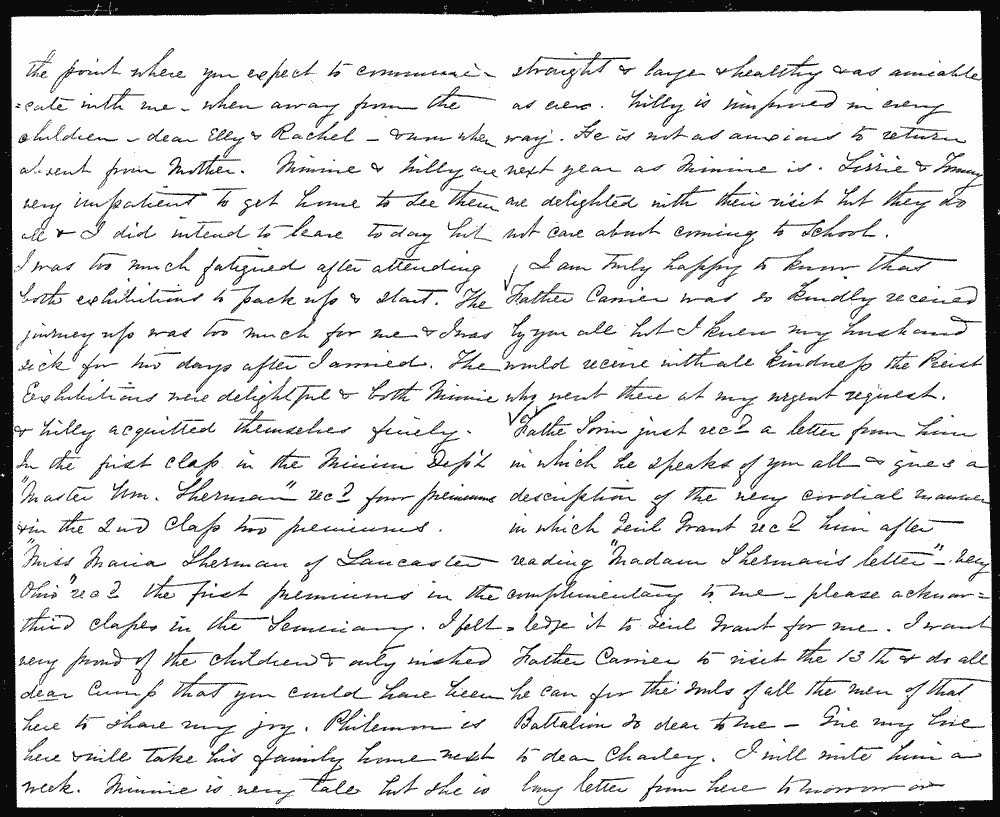 the point where you expect to communi-
=cate with me - when away from the
children - dear Elly & Rachel - & now when
absent from Mother. Minnie & Willy are
very impatient to get home to see them
all & I did intend to leave today but
I was too much fatigued after attending
both exhibitions to pack up & start. The
journey up was too much for me & I was
sick for two days after I arrived. The
Exhibitions were delightful & both Minnie
& Willy acquitted themselves finely.
In the first class in the Minim Dep't
"Master Wm. Sherman" recd four premiums
& in the 2nd Class two premiums.
"Miss Maria Sherman of Lancaster
Ohio" recd the first premiums in the
third classes in the Seminary. I felt
very proud of the children & only wished
dear Cump that you could have been
here to share my joy. Philemon is
here & will take his family home next
week. Minnie is very tall but she is
straight & large & healthy & as amiable
as ever. Willy is improved in every
way. He is not as anxious to return
next year as Minnie is. Lizzie & Tommy
are delighted with their visit but they do
not care about coming to School.
I am truly happy to know that
Father Carrier was so kindly received
by you all but I knew my husband
would receive with all kindness the Priest
who went there at my urgent request.
Father Sorin just recd a letter from him
in which he speaks of you all & gives a
description of the very cordial manner
in which Genl Grant recd him after
reading "Madam Sherman's letter" - Very
complimentary to me - please acknow=
=ledge it to Genl Grant for me. I want
Father Carrier to visit the 13th & do all
he can for the souls of all the men of that
Battalion so dear to me - Give my love
to dear Charley. I will write him a
long letter from here tomorrow or